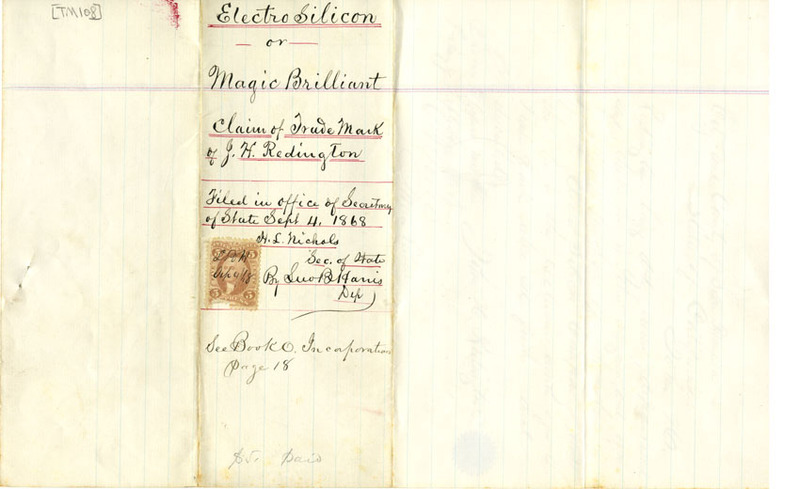 [TM108]
Electro Silicon
— or —
Magic Brilliant
Claim of Trade Mark
of J. H. Redington
Filed in office of Secretary
of State Sept 4, 1868
H. L. Nichols
Sec. of State
By Jno B Harris
Dep
5 5
See Book O, Incaporation
Page 18
$5. Paid